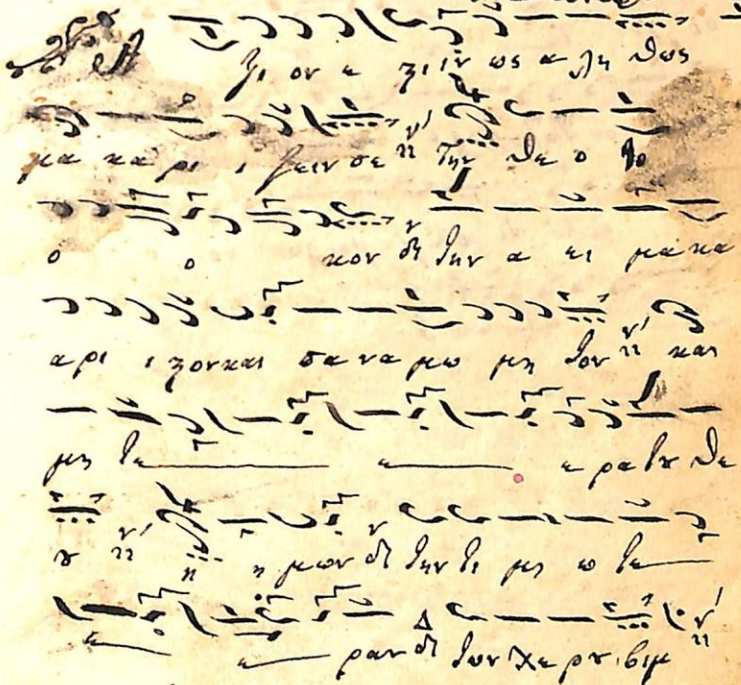 ξι ον ε ζιιν ως α λη θως
μα κα ρι ι ζειν σε την θε ο το
ο ο κον την α ει μα κα
α ρι ι ζον και πα να μω μη τον και
μη τε ε ε ρα του θε
ου η μων την τι μι ω τε
ε ε ραν των χε ρου βιμ